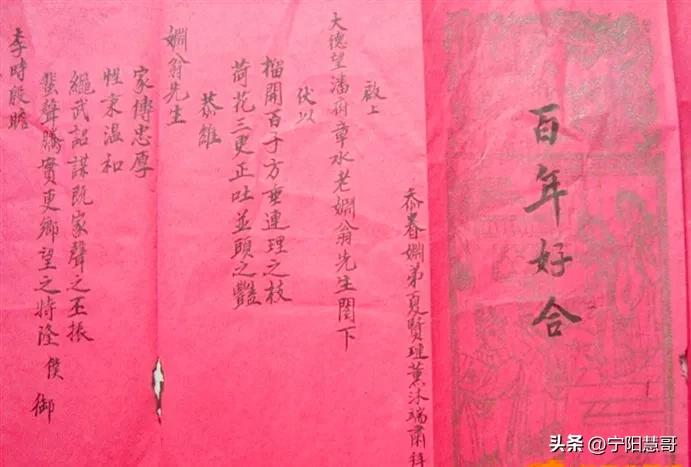 百年好合
忝眷姻弟夏賢璉薰沐端肅拜
啟上
大德望潘府章水老姻翁先生閣下
伏以
榴開百子方垂連理之枝
荷花三更正吐並頭之豔
恭維
姻翁先生
家傳忠厚
性秉溫和
繩武詒謀既家聲之丕振
蜚聲騰實更鄉望之特隆 僕 御
季時殷瞻
头条 @宁阳慧哥